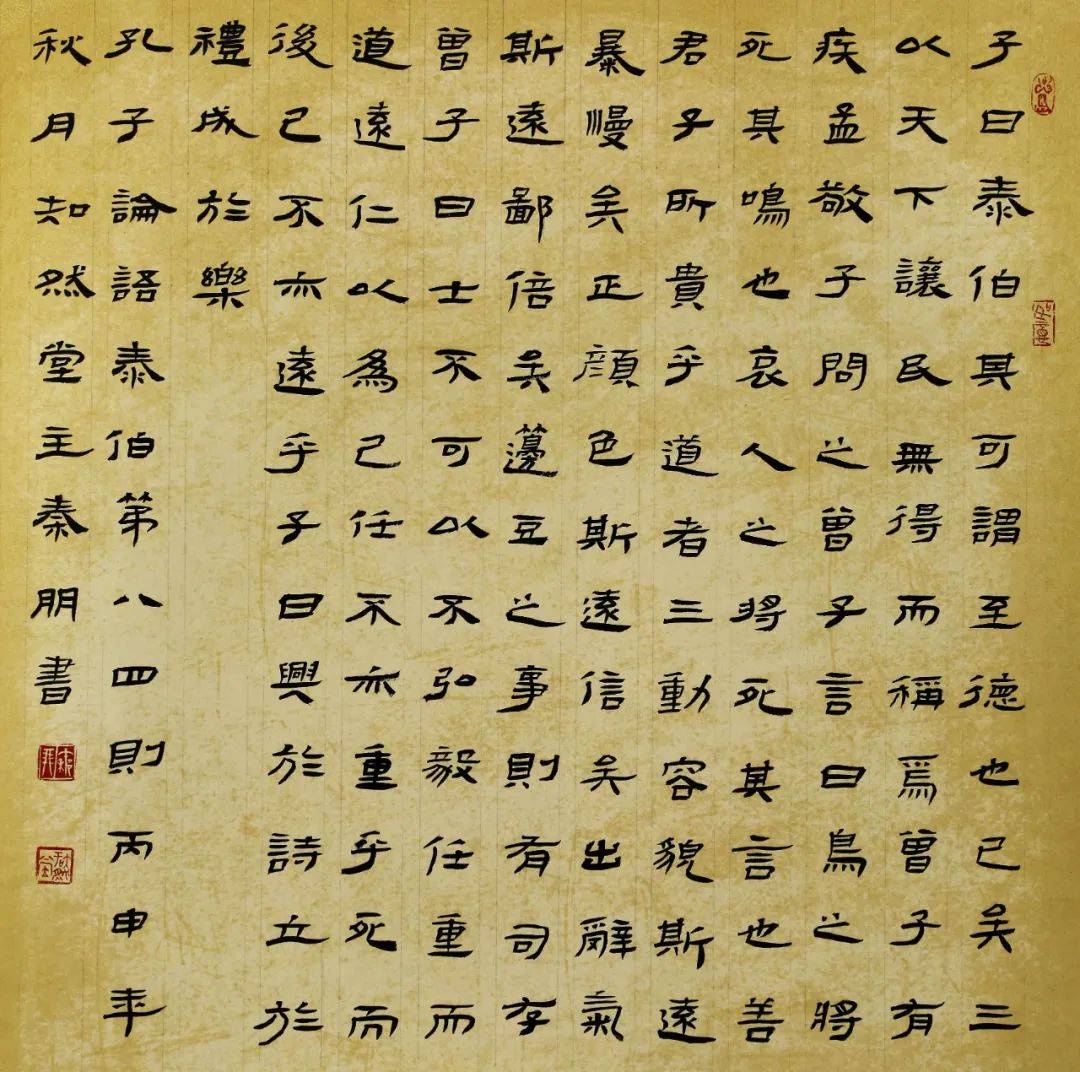 子曰泰伯其可謂至德也已矣三
以天下讓民無得而稱焉曾子有
疾孟敬子問之曾子言曰鳥之將
死其鳴也哀人之將死其言也善
君子所貴乎道者三動容貌斯遠
暴慢矣正顏色斯遠信矣出辭氣
斯遠鄙倍矣籩豆之事則有司存
曾子曰士不可以不弘毅任重而
道遠仁以為己任不亦重乎死而
後已不亦遠乎子曰興於詩立於
禮成於樂
孔子論語泰伯第八四則丙申年
秋月知然堂主秦朋書